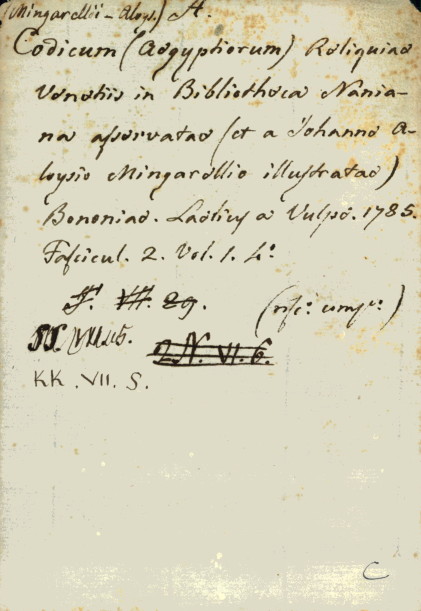 (Mingarelli - Aloys.) A.
Codicum (Aegyptiorum) Reliquiae
Venetiis in Bibliotheca Nania-
na asservatae (et a Johanne A-
loysio Mingarellio illustratae)
Bononiae. Laelius a Vulpe. 1785.
Fascicul. 2. Vol. 1. 4°.
VII. 29.
2 N. VI. 6.
KK. VII. 5.
C